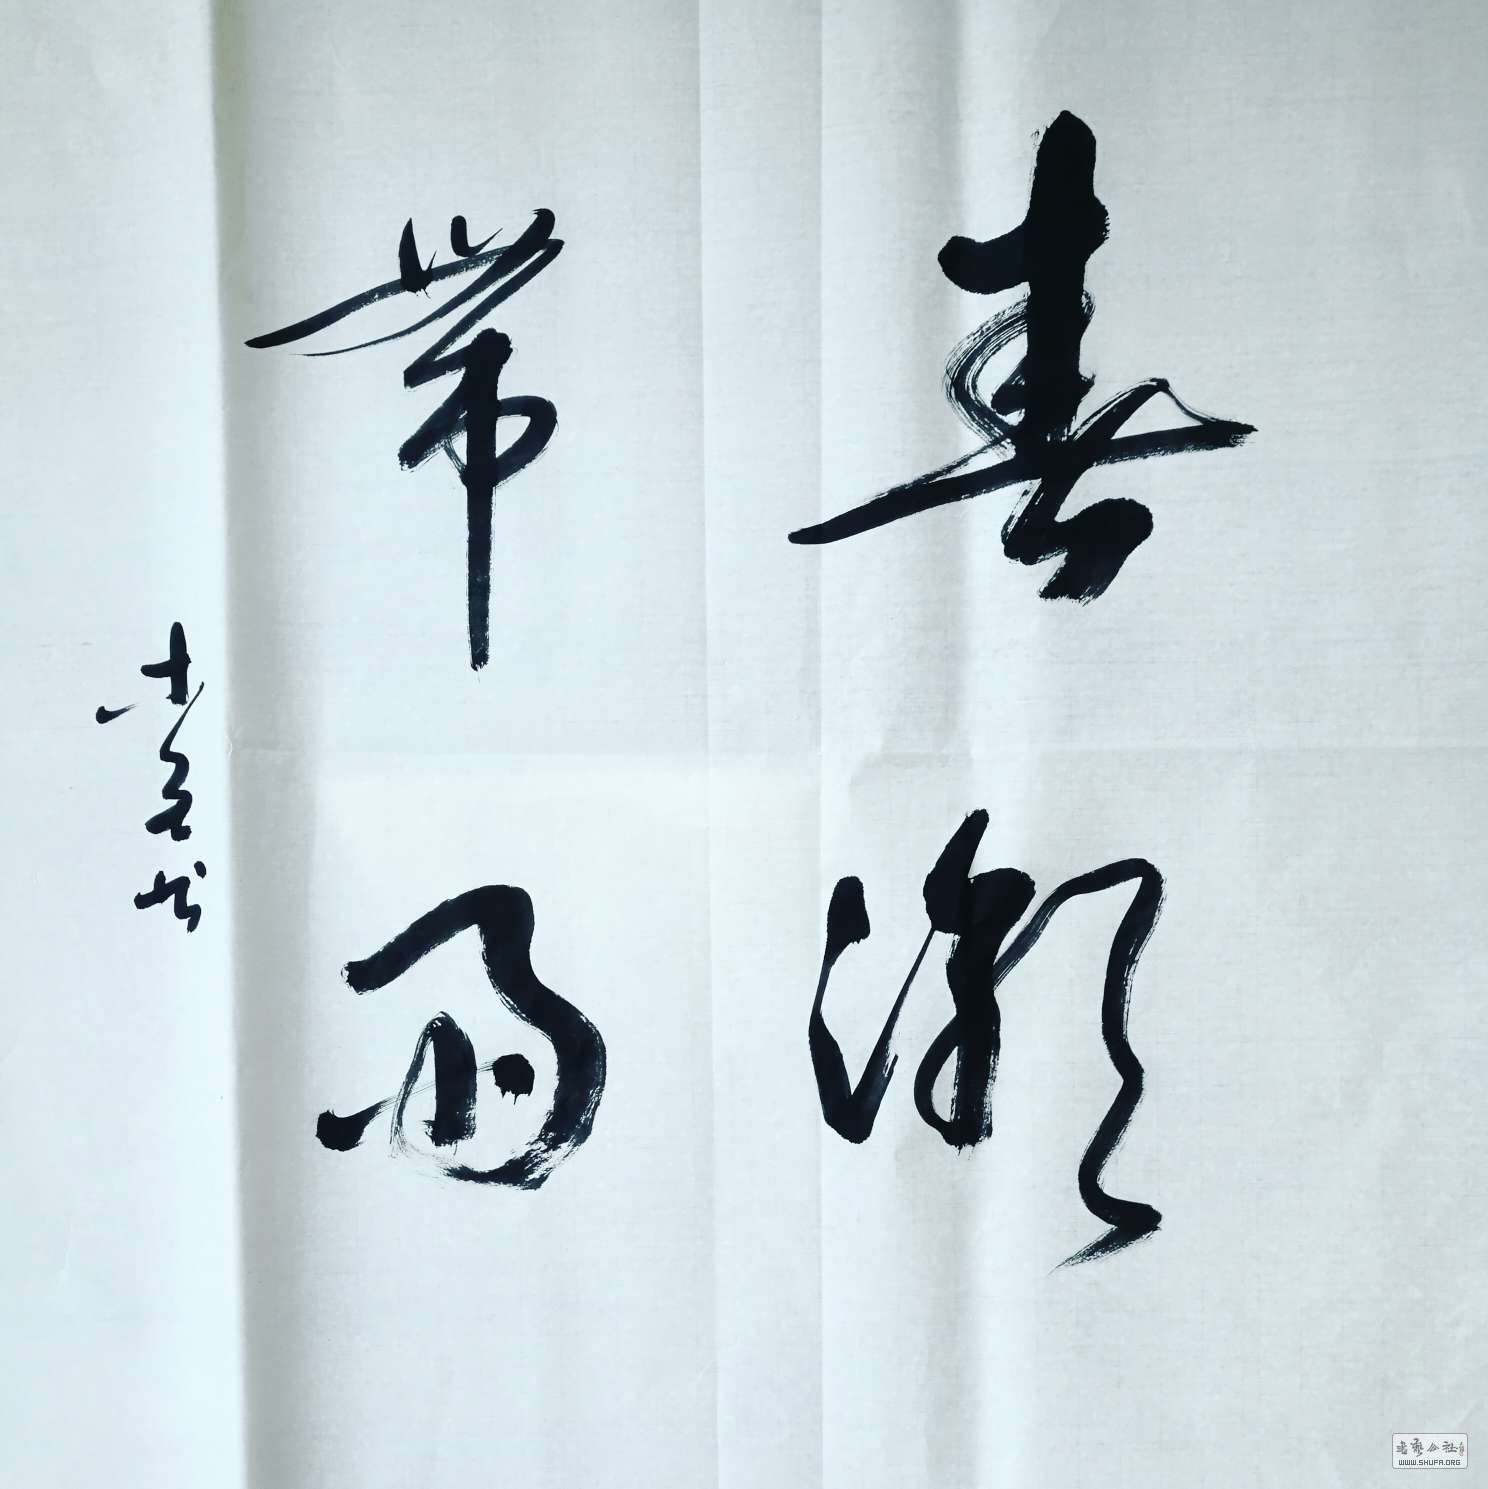 春潮
带雨
书艺公社
WWW.SHUFA.ORG